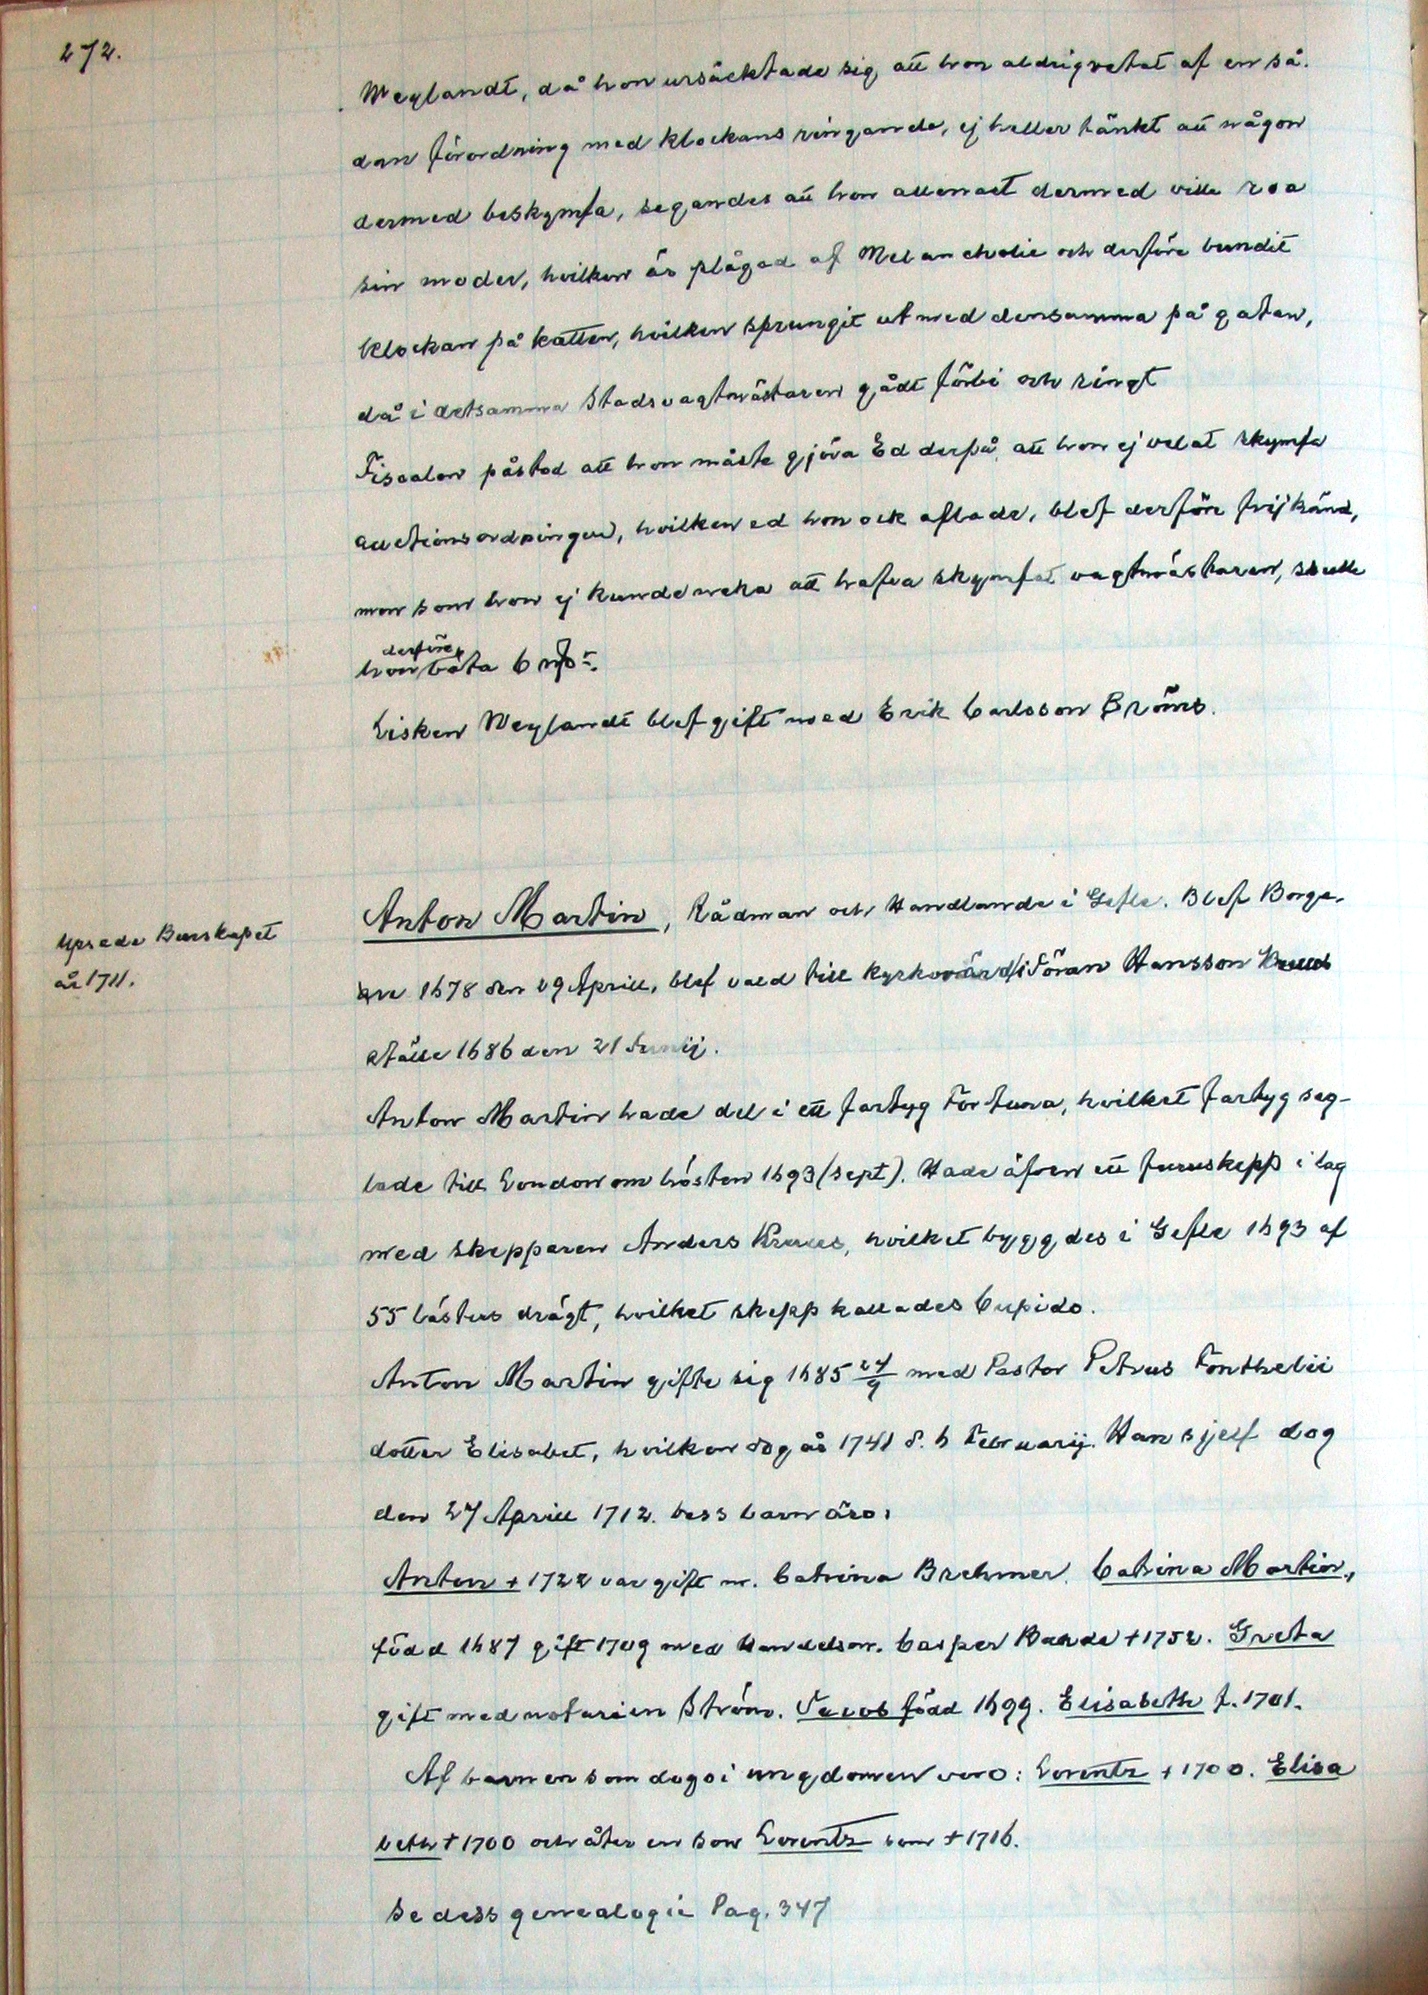 272.
Weylandt, då hon ursäcktade sig, att hon aldrig vetat af en så-
dan förordning med klockans ringande, ej heller tänkt att någon
dermed beskymfa, segandes att hon allenast dermed ville roa
sin moder, hvilken är plågad af Melancholie och derföre bundit
klockan på katten, hvilken sprungit ut med densamma på gatan,
då i detsamma Stadsvagtmästaren gådt förbi och ringt
Fiscalen påstod att hon måste gjöra Ed derpå, att hon ej velat skymfa
auctionsordningen, hvilken ed hon ock aflade, blef derföre frijkänd,
men som hon ej kunde neka att hafva skymfat vagtmästaren, skulle
derföre
hon böta 6
Lisken Weylandt blef gift med Erik Carlsson Bröms.
Upsade Burskapet
år 1711.
Anton Martin, Rådman och Handlande i Gefle. Blef Borga-
re 1678 den 29 Aprill, blef vald till kyrkovärd i Jöran Hansson Kruus
ställe 1686 den 21 Junij.
Anton Martin hade del i ett fartyg Fortuna, hvilket fartyg seg-
lade till London om hösten 1693 (sept). Hade äfven ett furuskepp i lag
med skepparen Anders Kruus, hvilket byggdes i Gefle 1693 af
55 lästers drägt, hvilket skepp kallades Cupido.
Anton Martin gifte sig 1685 27/9 med Pastor Petrus Fonthelii
dotter Elisabet, hvilken dog år 1741 d. 6 Februarij. Han sjelf dog
den 27 Aprill 1712. Dess barn äro:
Anton + 1722 var gift m. Catrina Brehmer. Catrina Martin,
född 1687 gift 1709 med Handelsm. Casper Bahde +1752. Greta
gift med notarien Ström. Jacob född 1699. Elisabeth f. 1701.
Af barnen som dogo i ungdomen voro: Lorentz + 1700. Elisa
beth + 1700 och åter en son Lorentz som + 1716.
Se dess genealogie Pag. 347